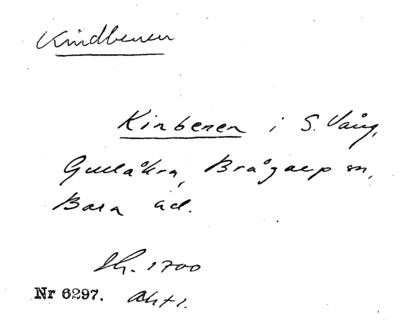 Kindbenen
Kinbenen i S. Vång,
Gullåkra, Brågarp sn,
Bara äd.
Sk. 1700
Nr 6297. Akt 1.